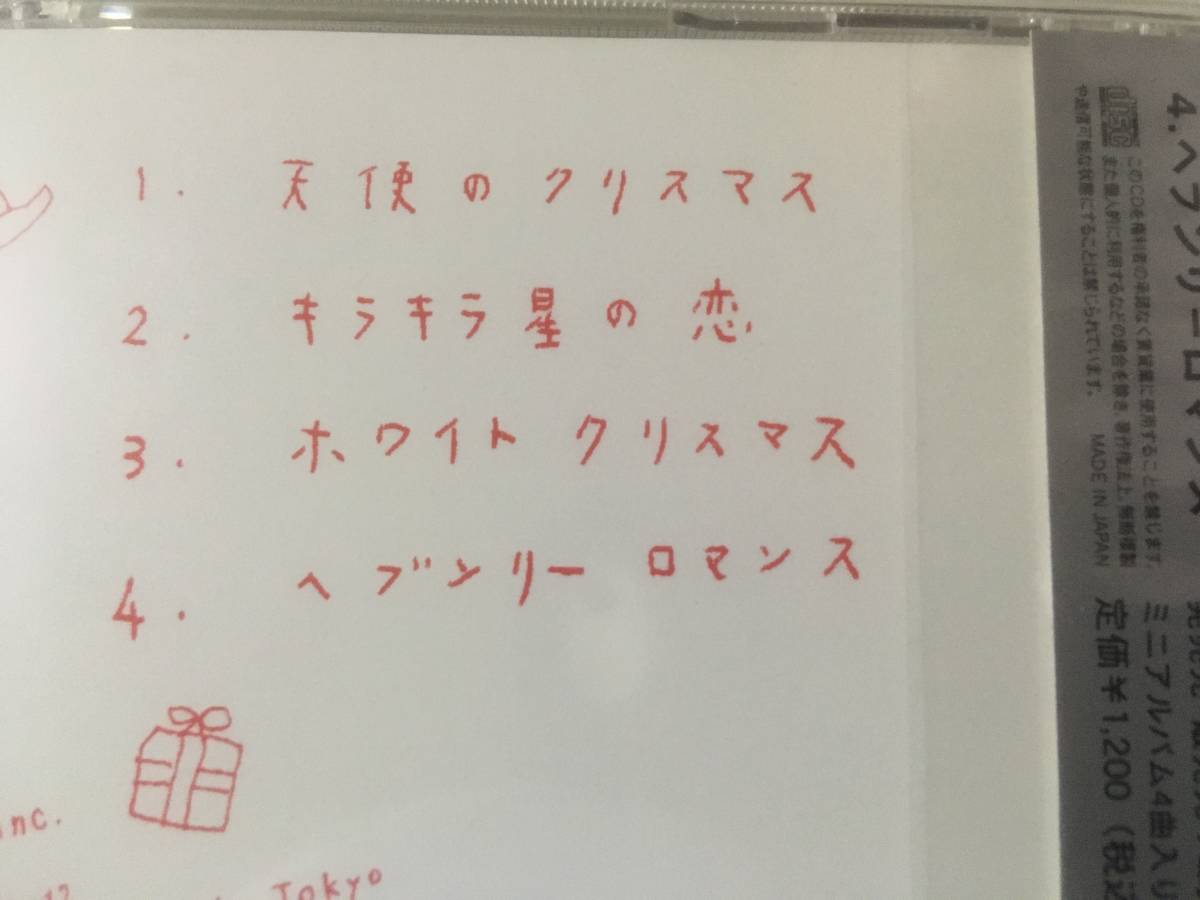 1. 天使のクリスマス
2. キラキラ星の恋
3. ホワイト クリスマス
4. ヘブンリー ロマンス
inc.
Tokyo
4.ヘブンリーロマンス
disc
このCDを権利者の承諾なく賃貸業に使用することを禁じます。
また個人的に利用するなどの場合を除き、著作権法上、無断複製
や送信可能な状態にすることは禁じられています。 MADE IN JAPAN
ミニアルバム4曲入り
定価¥1,200(税込